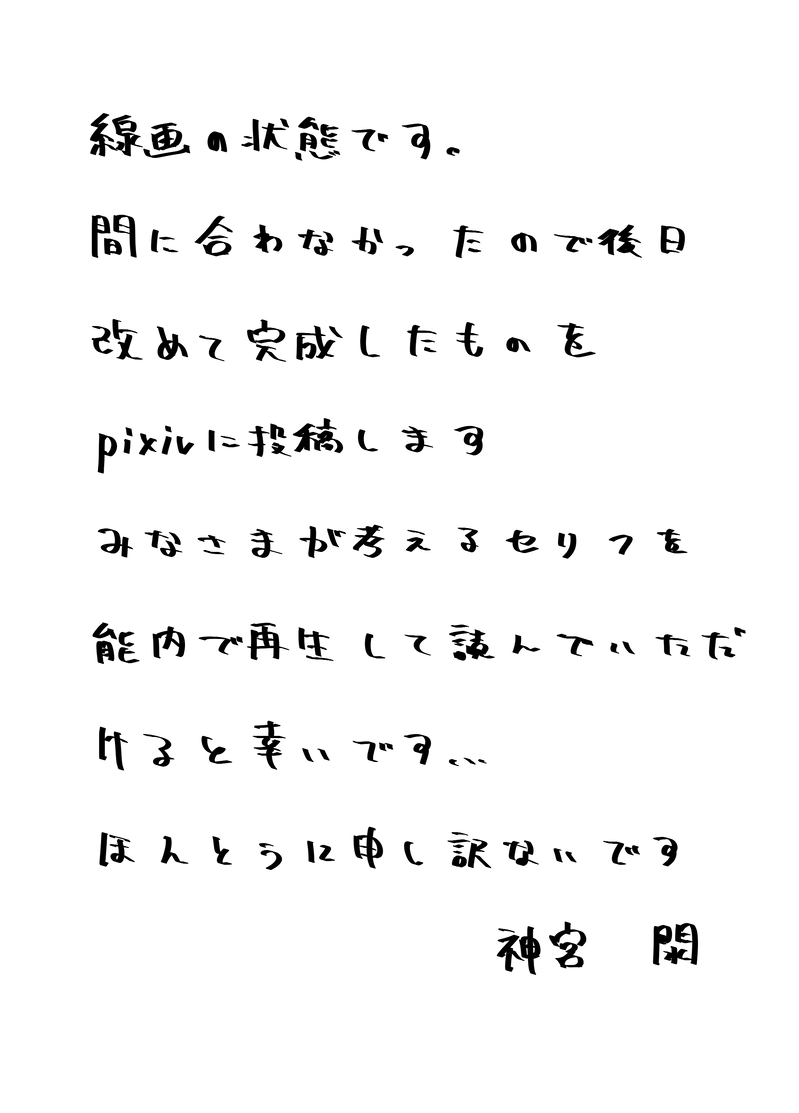 線画の状態です。
間に合わなかったので後日
改めて完成したものを
pixivに投稿します
みなさまが考えるセリフを
能内で再生して読んでいただ
けると幸いです...
ほんとうに申し訳ないです
神宮